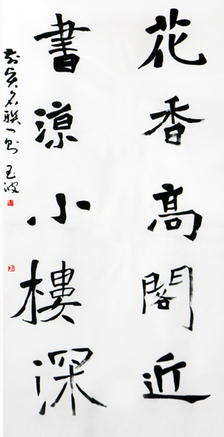 花香高閣近
書涼小樓深
名聯一